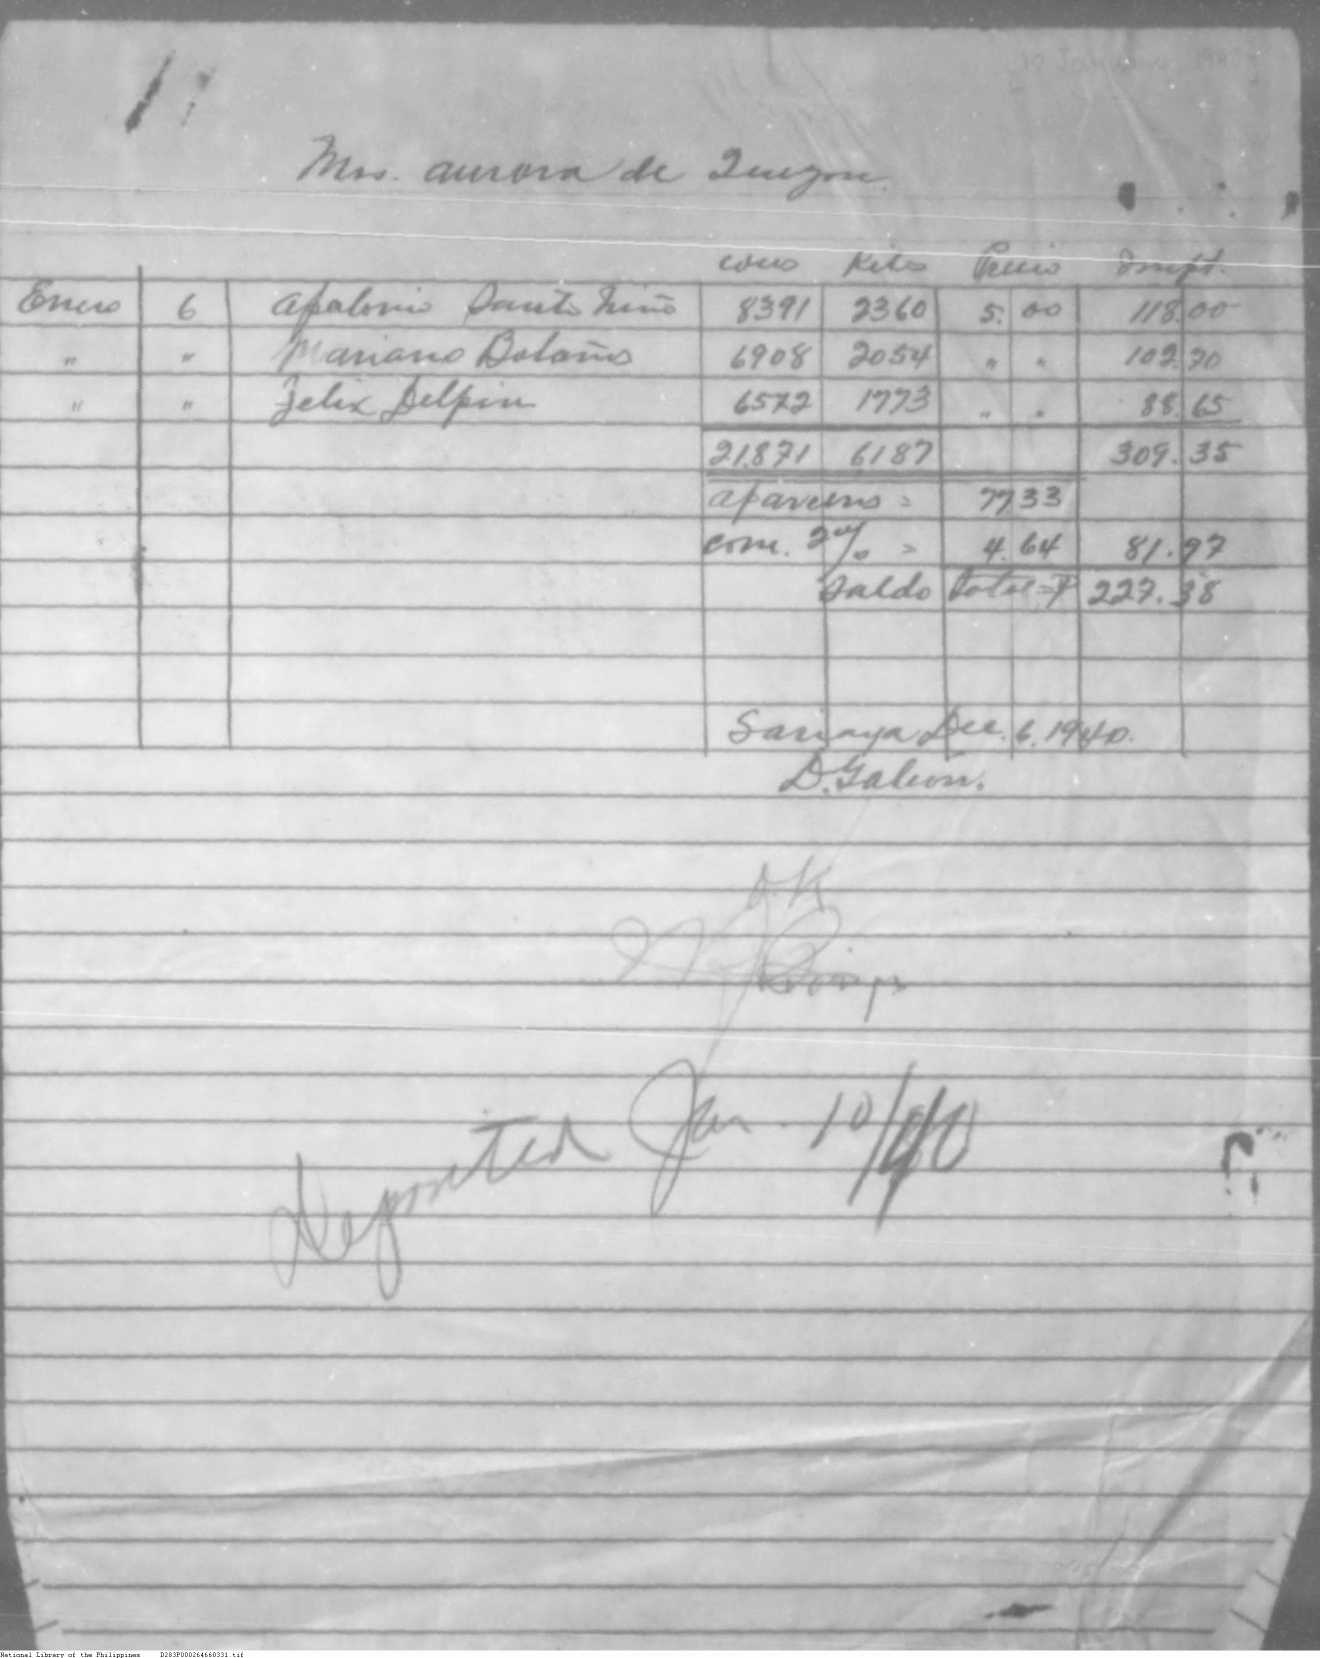 Mrs. Aurora de Quezon
cocos Kilos Precio Impt.
Enero 6 Apalonio Santo Niño 8391 2360 5.00 118.00
" " Mariano Bolaños 6908 2054 " " 102.70
" " Felix Delpin 6572 1773 " " 88.65
21.871 6187 309.35
aparceros = 77.33
com. 2 % = 4.64 81.97
Saldo total = ₱ 227.38
Sariaya Dec. 6, 1940.
D. Galeon.
O.K.
Deposited Jan. 10/40
National Library of the Philippines D283P000264660331.tif